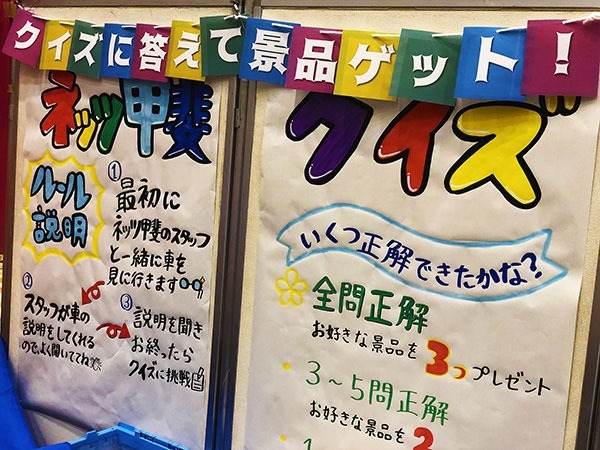 クイズに答えて景品ゲット!
ネッツ甲斐
ルール
説明
①
最初に
ネッツ甲斐のスタッフ
と一緒に車を
見に行きます
②
スタッフが車の
説明をしてくれる
ので、よく聞いててね
③
説明を聞き
お終ったら
クイズに挑戦
クイズ
いくつ正解できたかな?
全問正解
お好きな景品を3つプレゼント
3~5問正解
お好きな景品を2
1